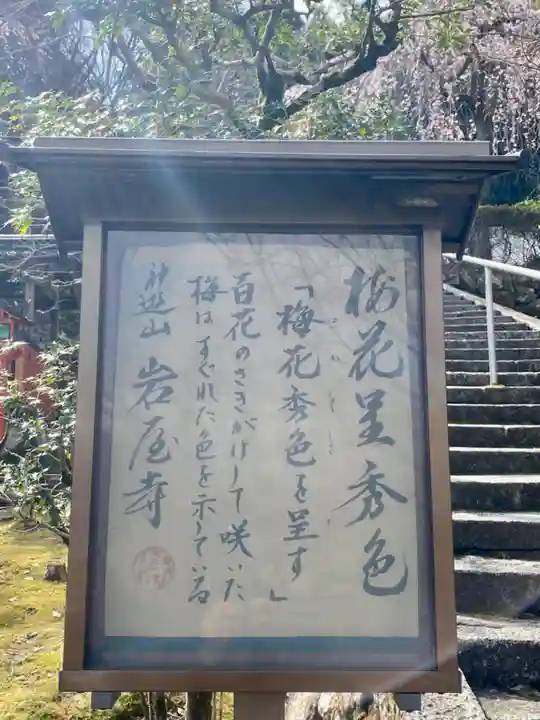 梅花呈秀色
「梅花秀色を呈す」
百花のさきがけして咲いた
梅はすぐれた色を示している
神遊山 岩屋寺